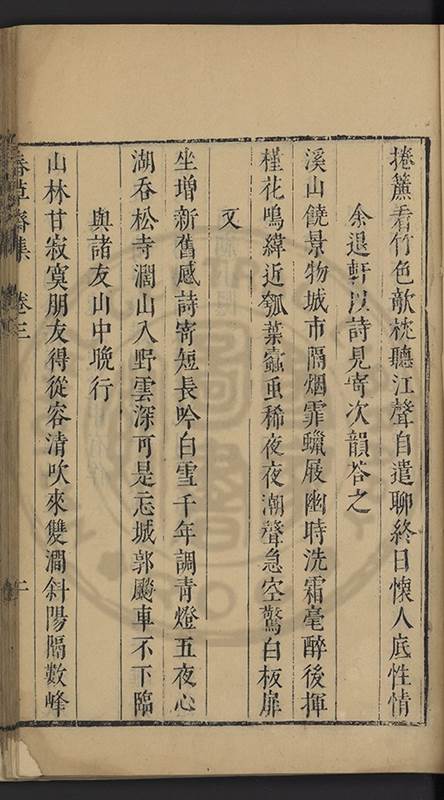 捲簾看竹色欹枕聽江聲自遣聊終日懷人底性情
余退軒以詩見寄次韻荅之
溪山饒景物城市隔烟霏蠟屐幽時洗霜毫醉後揮
槿花鳴緯近瓠葉蠹䖝稀夜夜潮聲急空驚白板扉
又
坐增新舊感詩寄短長吟白雪千年調青燈五夜心
湖吞松寺濶山入野雲深可是忘城郭飈車不下臨
與諸友山中晚行
山林甘寂寞朋友得從容清吹來雙澗斜陽隔數峰
春草齋集 卷三